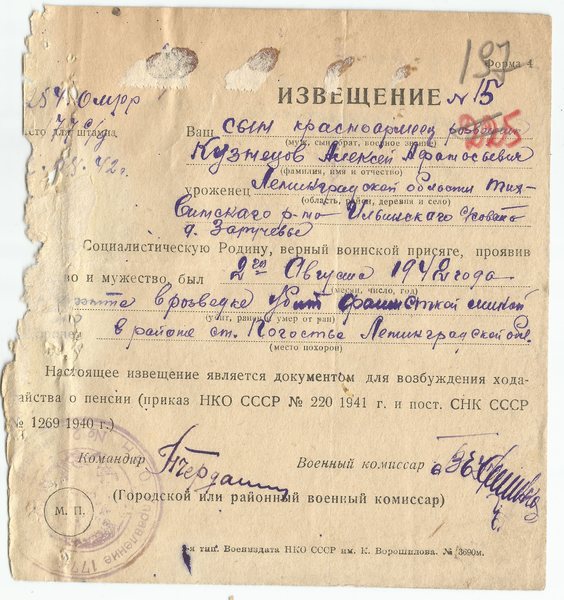 197
Форма 4
ИЗВЕЩЕНИЕ №15
225
Ваш сын красноармеец разведчик
(муж, сын, брат, военное звание)
Кузнецов Алексей Афанасьевич
(фамилия, имя и отчество)
уроженец Ленинградской области Тих-
(область, район, деревня и село)
винского р-на Ильинского с/совета
д. Заручевье
Социалистическую Родину, верный воинской присяге, проявив
во и мужество, был 2го Августа 1942 года
(месяц, число, год)
в разведке убит фашистской
(убит, ранен и умер от ран)
в районе ст. Погостье Ленинградской обл.
(место похорон)
Настоящее извещение является документом для возбуждения хода-
айства о пенсии (приказ НКО СССР № 220 1941 г. и пост. СНК СССР
№ 1269 1940 г.)
Командир
Военный комиссар
(Городской или районный военный комиссар)
М. П.
-я тип. Воениздата НКО СССР им. К. Ворошилова. № 3690м.